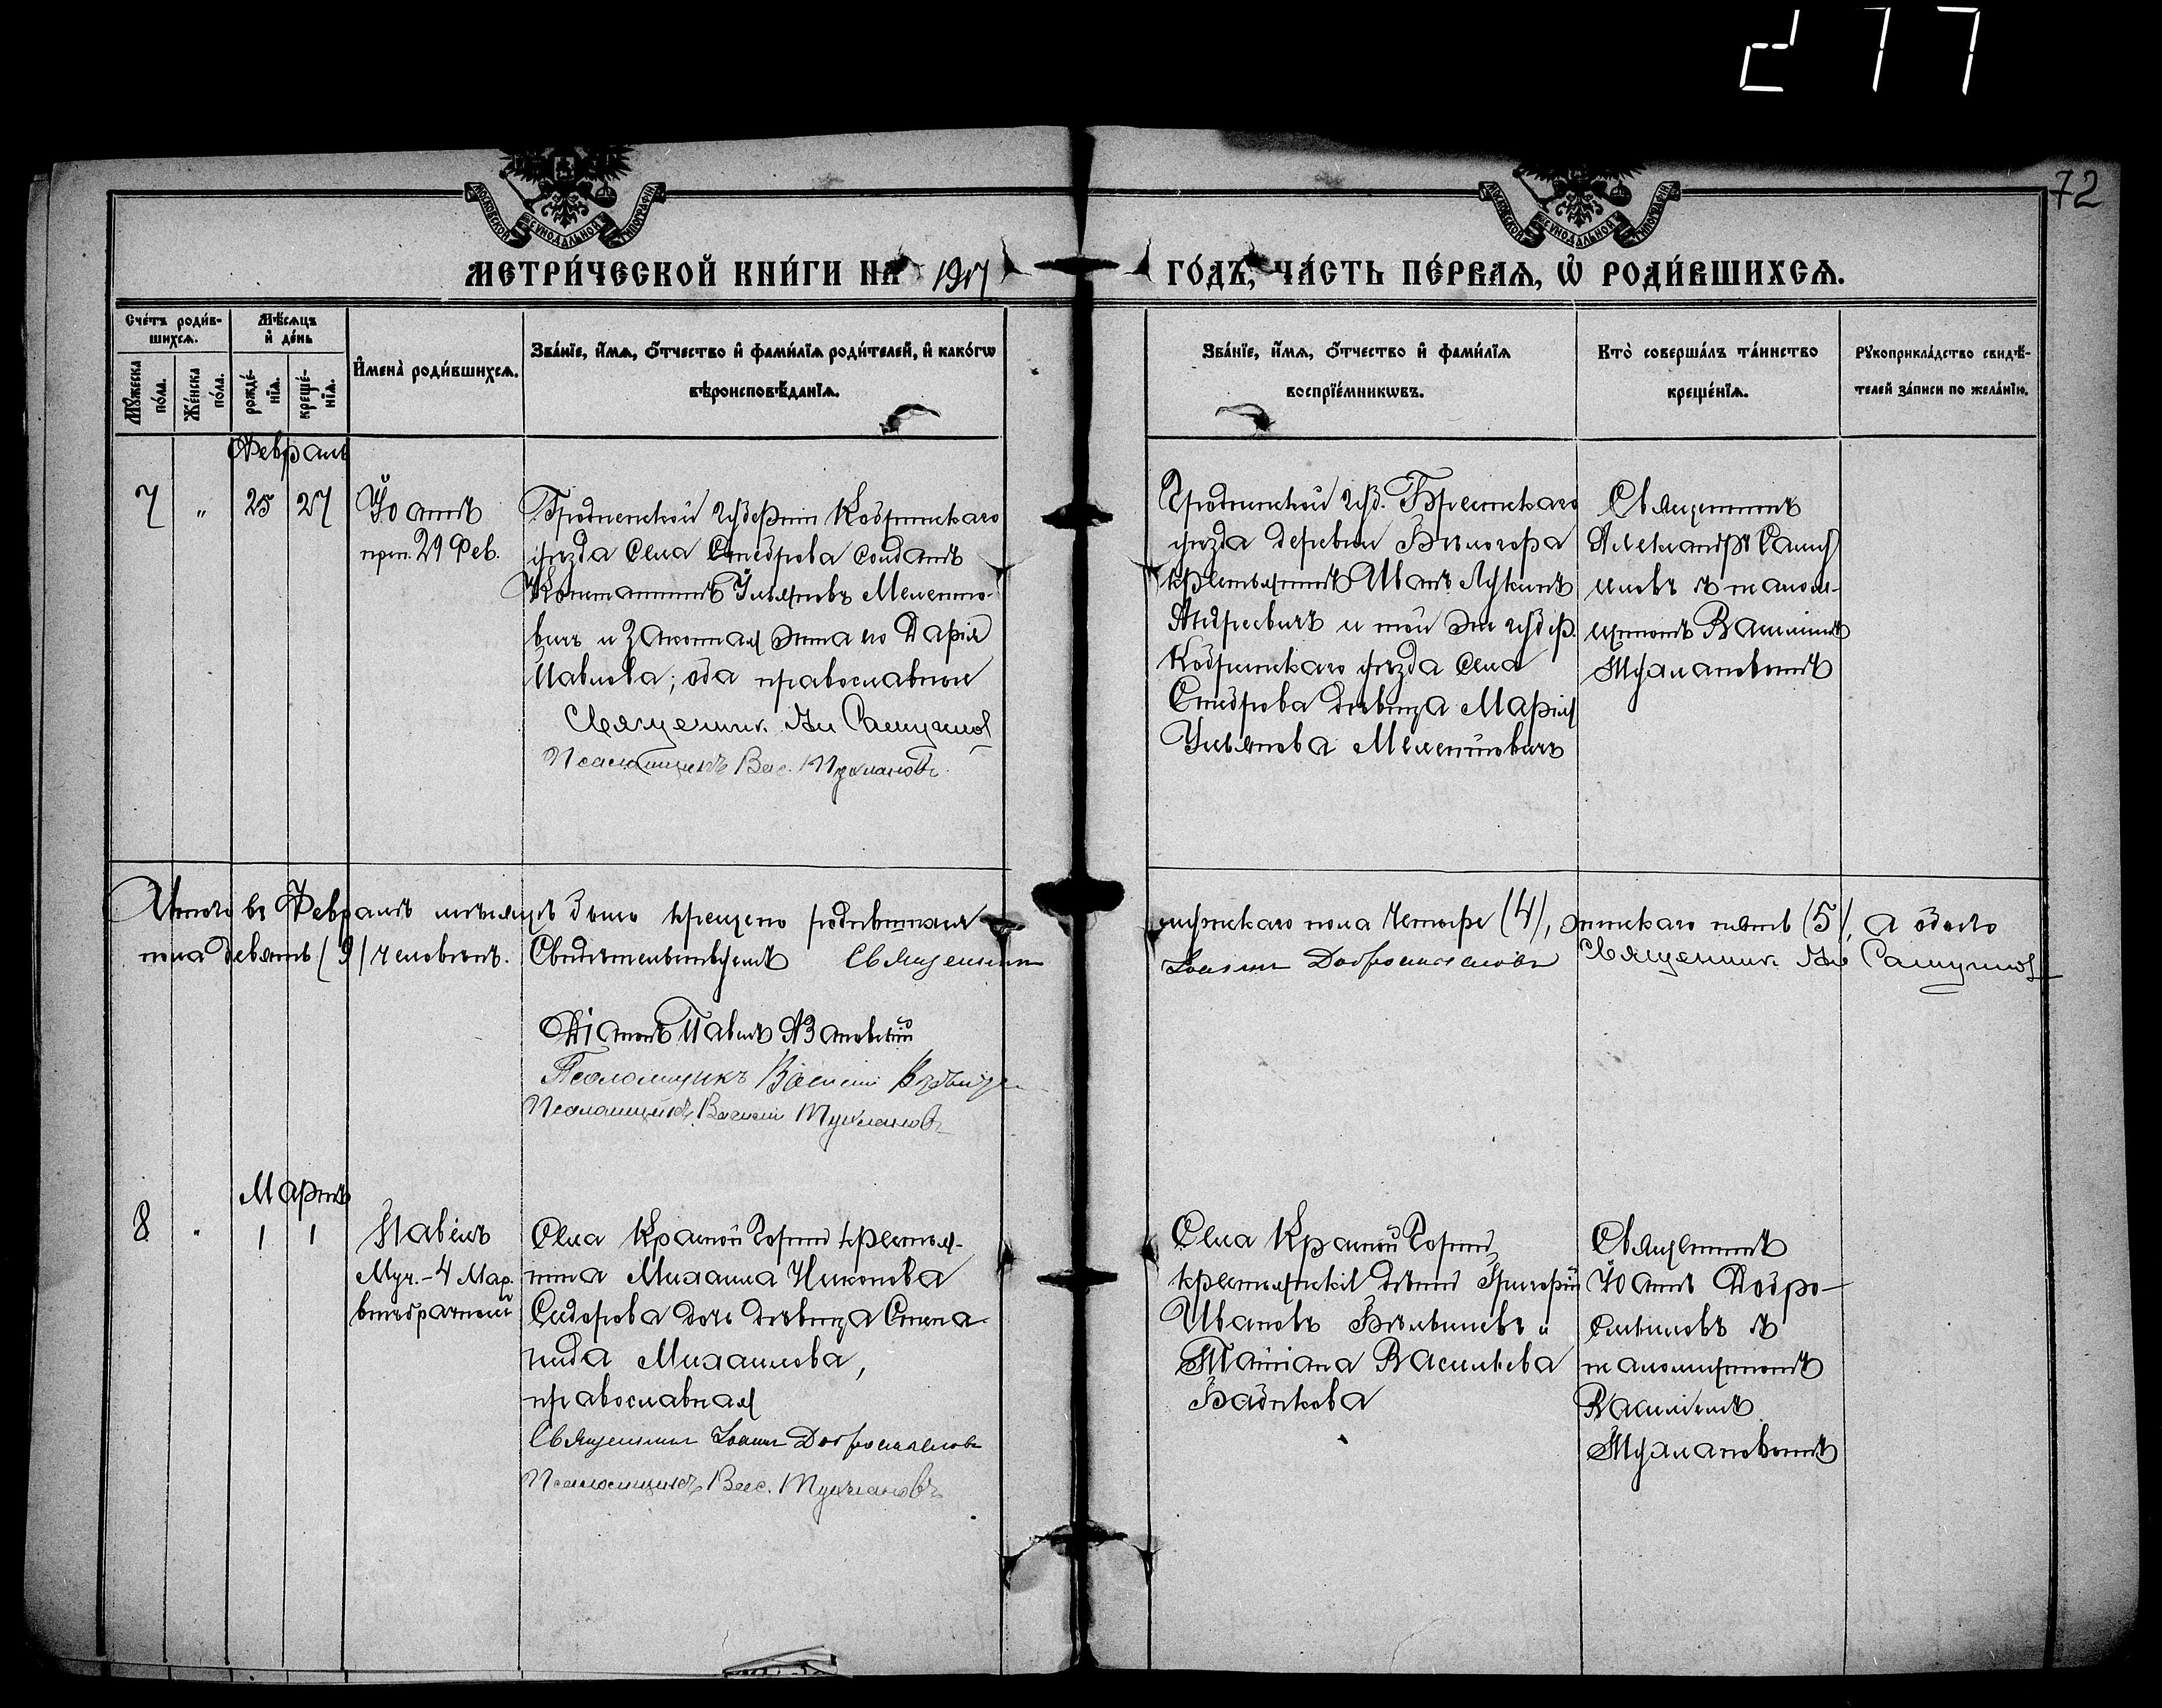 277
72
МОСКОВСКОЙ СУНОДАЛЬНОЙ ТИПОГРАФІИ
МОСКОВСКОЙ СУНОДАЛЬНОЙ ТИПОГРАФІИ
МЕТРИ́ЧЕСКОЙ КНИ́ГИ НА 1917
ГО́ДЪ, ЧА́СТЬ ПЕ́РВАѦ, Ѡ҆ РОДИ́ВШИХСѦ.
Счетъ роди́в-
шихсѧ.
Мꙋ́жеска по́ла.
Же́нска по́ла.
Мѣ́сѧцъ
и҆ де́нь
рожде́-
нїѧ.
креще́-
нїѧ.
И҆мена̀ роди́вшихсѧ.
Зва́нїе, и҆́мѧ, ѻ҆́тчество и҆ фами́лїѧ роди́телей, и҆ како́гѡ
вѣроисповѣ́данїѧ.
Зва́нїе, и҆́мѧ, ѻ҆́тчество и҆ фами́лїѧ
воспрїе́мникѡвъ.
Кто̀ соверша́лъ та́инство
креще́нїѧ.
Рꙋкоприкла́дство свидѣ́-
телей за́писи по жела́нїю.
Февраль
7 „ 25 27
Іоаннъ
преп. 29 Фев.
Гродненской губерніи Кобринскаго
уѣзда села солдатъ
Константинъ Ульяновъ Меленто-
вичъ и законная жена его Дарія
Павлова; оба православные
Священник. Ал. Самуилов
Псаломщикъ Вас. Тухлановъ
Гродненской губ. Брестскаго
уѣзда деревни
крестьянинъ Иванъ Лукинъ
Андреевичъ и той же губер.
Кобринскаго уѣзда села
дѣвица Марія
Ульянова Мелентовичъ
Священникъ
Александръ Саму-
иловъ съ псалом-
щикомъ Василіемъ
Тухлановымъ
Итого въ Февралѣ мѣсяцѣ было крещено родившихся
мужскаго пола четыре (4), женскаго пять (5), а обоего
пола девять (9) человѣкъ. Свидѣтельствуемъ Священникъ
Іоаннъ Добросмысловъ Священник. Ал. Самуилов
Діаконъ Павелъ
Псаломщикъ Василій
Псаломщикъ Василій Тухлановъ
Мартъ
8 „ 1 1
Павелъ
Муч. - 4 Мар.
внѣбрачный
Села Красной Горки крестья-
нина Михаила Никонова
Сидорова дочь дѣвица Степа-
нида Михаилова,
православная
Священникъ Іоаннъ Добросмысловъ
Псаломщикъ Вас. Тухлановъ
Села Красной Горки
крестьянскіе дѣти Григорій
Ивановъ и
Татіана Васильева
Бабикова
Священникъ
Іоаннъ Добро-
смысловъ съ
псаломщикомъ
Василіемъ
Тухлановымъ